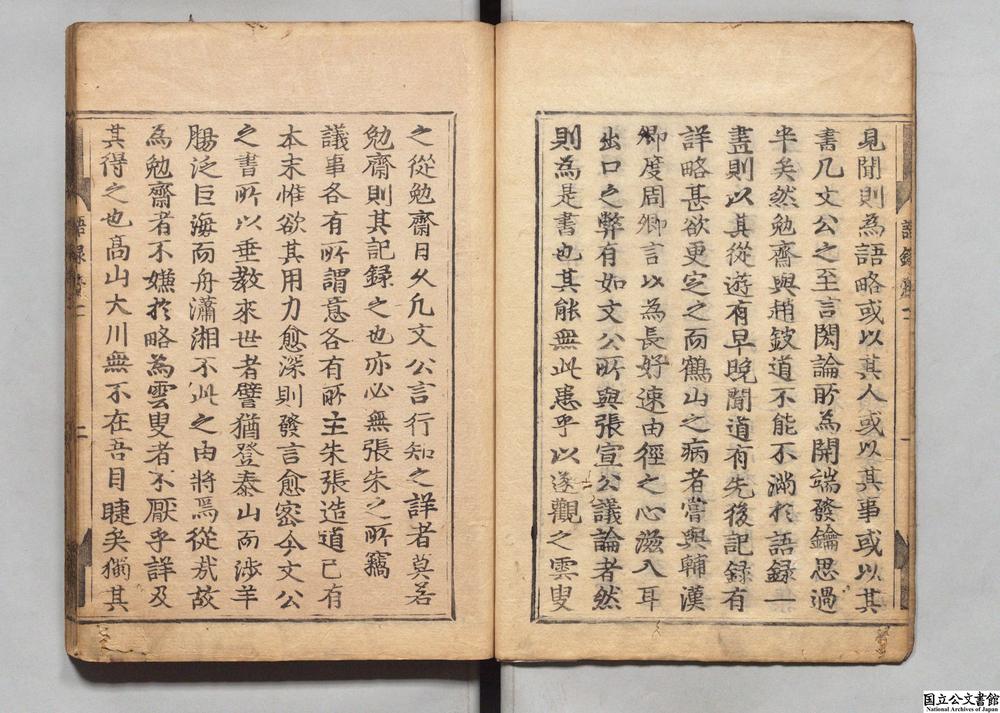 見聞則為語略或以其人或以其事或以其
書凡文公之至言閎論所為開端發鑰思過
半矣然勉齋與趙鈸道不能不滿於語録一
盡則以其從遊有早晚聞道有先後記録有
詳略甚欲更定之而鶴山之病者嘗與輔漢
卿度周卿言以為長好速由徑之心滋入耳
出口之弊有如文公所與張宣公議論者然
則為是書也其能無此患乎以遂觀之雲叟
之從勉齋日久凡文公言行知之詳者莫若
勉齋則其記録之也亦必無張朱之所竊
議事各有所謂意各有所主朱張造道已有
本末惟欲其用力愈深則發言愈宻今文公
之書所以垂教來世者譬猶登泰山而涉羊
腸泛巨海而舟瀟湘不此之由將焉從㢤故
為勉齋者不嫌於略為雲叟者不厭乎詳及
其得之也髙山大川無不在吾目睫矣猶其
語録
一
語録
二
国立公文書館
National Archives of Japan